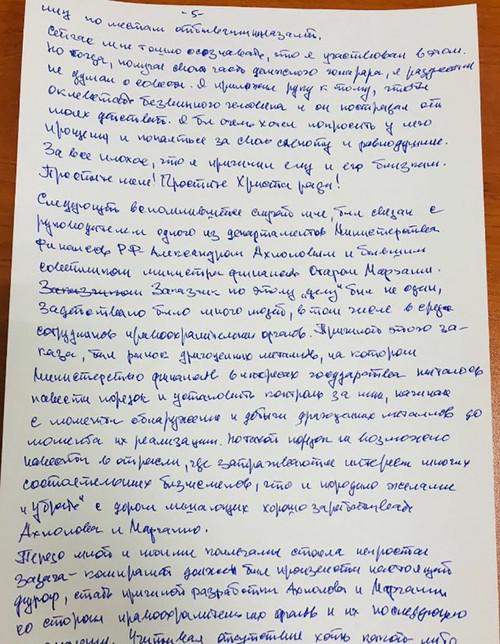 - 5 -
ниц по местам отбывания наказания.
Сейчас мне тошно осознавать, что я участвовал в этом.
Но тогда, получая свою часть денежного гонорара, я
не думал о совести. Я приложил руку к тому, чтобы
оклеветать безвинного человека и он пострадал от
моих действий. Я бы очень хотел попросить у него
прощения и покаяться за свою слепоту и равнодушие.
За все плохое, что я причинил ему и его близким.
Простите меня! Простите Христа ради!
Следующий вспомнившийся случай мне, был связан с
руководителем одного из департаментов Министерства
Финансов РФ Александром Ахполовым и бывшим
советником министра финансов Отаром Маргания.
Заказчиком Заказчик по этому „делу" был не один,
Задействовано было много людей, в том числе и среди
сотрудников правоохранительных органов. Причиной этого за-
каза, был рынок драгоценных металлов, на котором
Министерство финансов в интересах государства пыталось
навести порядок и установить контроль за ним, начиная
с момента обнаружения и добычи драгоценных металлов до
момента их реализации. порядок не возможно
навести в отрасли, где затрагиваются интересы многих
состоятельных бизнесменов, что и породило желание
„убрать" с дороги мешающих хорошо зарабатывать
Ахполова и Маргания.
Передо мной и моими стояла непростая
задача - компромат должен был произвести настоящий
фурор, стать причиной разработки Ахполова и Маргания
со стороны правоохранительных органов и их последующего
Учитывая отсутствие хоть какого-либо